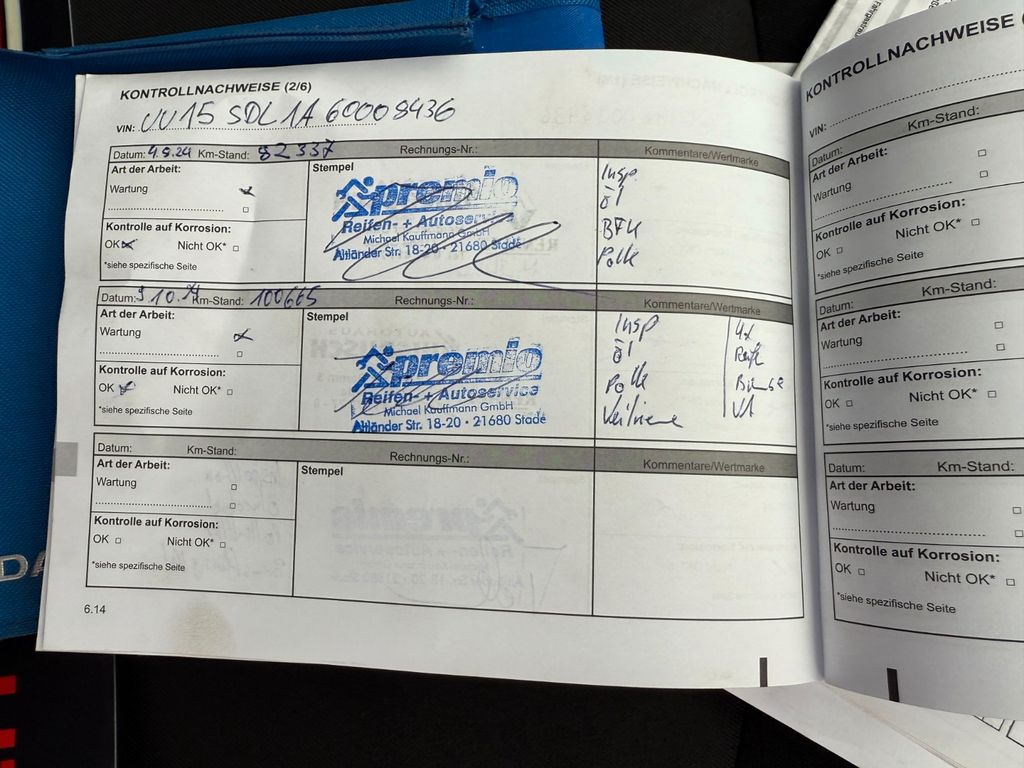 KONTROLLNACHWEISE (2/6)
VIN: UU15 SDL 1A 60008436
Datum: 4.9.24 Km-Stand: 82 337 Rechnungs-Nr.: Kommentare/Wertmarke
Art der Arbeit:
Wartung
Kontrolle auf Korrosion:
OK Nicht OK*
*siehe spezifische Seite
Stempel
premio
Reifen- + Autoservice
Michael Kauffmann GmbH
Altländer Str. 18-20 · 21680 Stade
Insp.
Öl
BFK
Polle
Datum: Km-Stand: 100665 Rechnungs-Nr.: Kommentare/Wertmarke
Art der Arbeit:
Wartung
Kontrolle auf Korrosion:
OK Nicht OK*
*siehe spezifische Seite
Stempel
premio
Reifen- + Autoservice
Michael Kauffmann GmbH
Altländer Str. 18-20 · 21680 Stade
Insp
Öl
Polle
4x
Datum: Km-Stand: Rechnungs-Nr.: Kommentare/Wertmarke
Art der Arbeit:
Wartung
Kontrolle auf Korrosion:
OK Nicht OK*
*siehe spezifische Seite
Stempel
6.14
KONTROLLNACHWEISE (
VIN:
Datum: Km-Stand:
Art der Arbeit:
Wartung
Kontrolle auf Korrosion:
OK Nicht OK*
*siehe spezifische Seite
Datum: Km-Stand:
Art der Arbeit:
Wartung
Kontrolle auf Korrosion:
OK Nicht OK*
*siehe spezifische Seite
Datum: Km-Stand:
Art der Arbeit:
Wartung
Kontrolle auf Korrosion:
OK Nicht OK*
*siehe spezifische Seite
DA